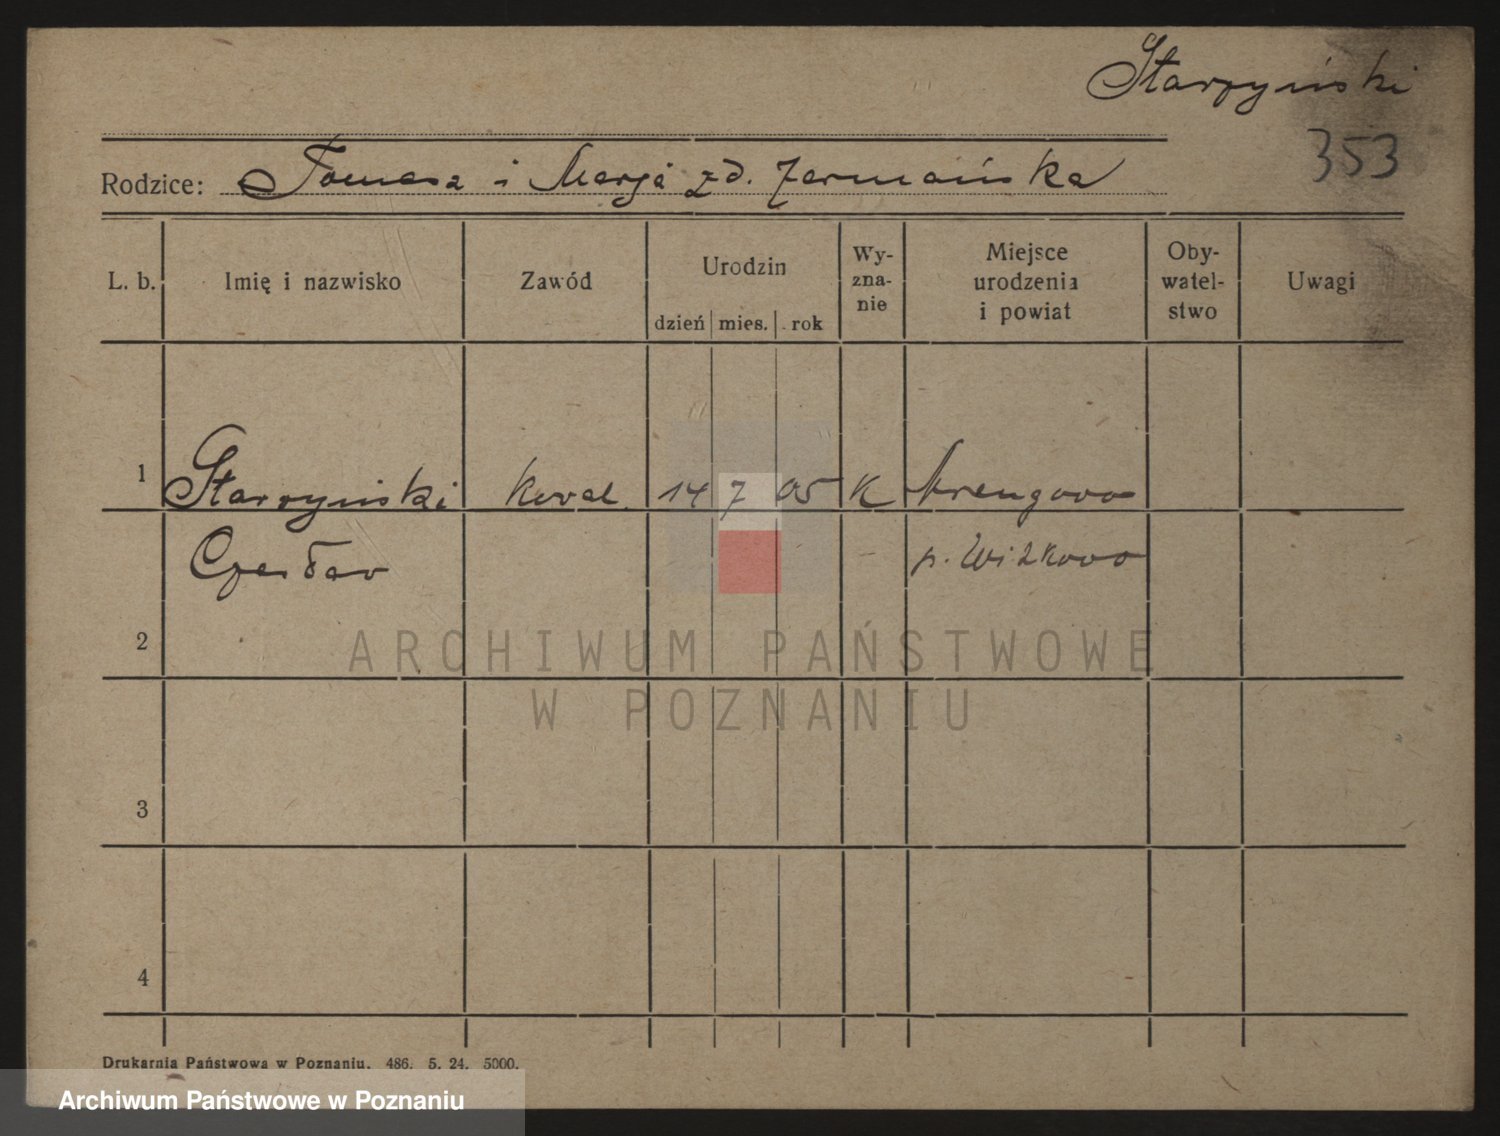 Starzyński
353
Rodzice: Tomasz i Marja zd. Jarmańska
L. b.
Imię i nazwisko
Zawód
Urodzin
dzień mies. rok
Wy-
zna-
nie
Miejsce
urodzenia
i powiat
Oby-
watel-
stwo
Uwagi
1 Starzyński kowal. 14 7 05 K
Czesław p. Witkowo
2
3
4
ARCHIWUM PAŃSTWOWE
W POZNANIU
Drukarnia Państwowa w Poznaniu. 486. 5. 24. 5000.
Archiwum Państwowe w Poznaniu